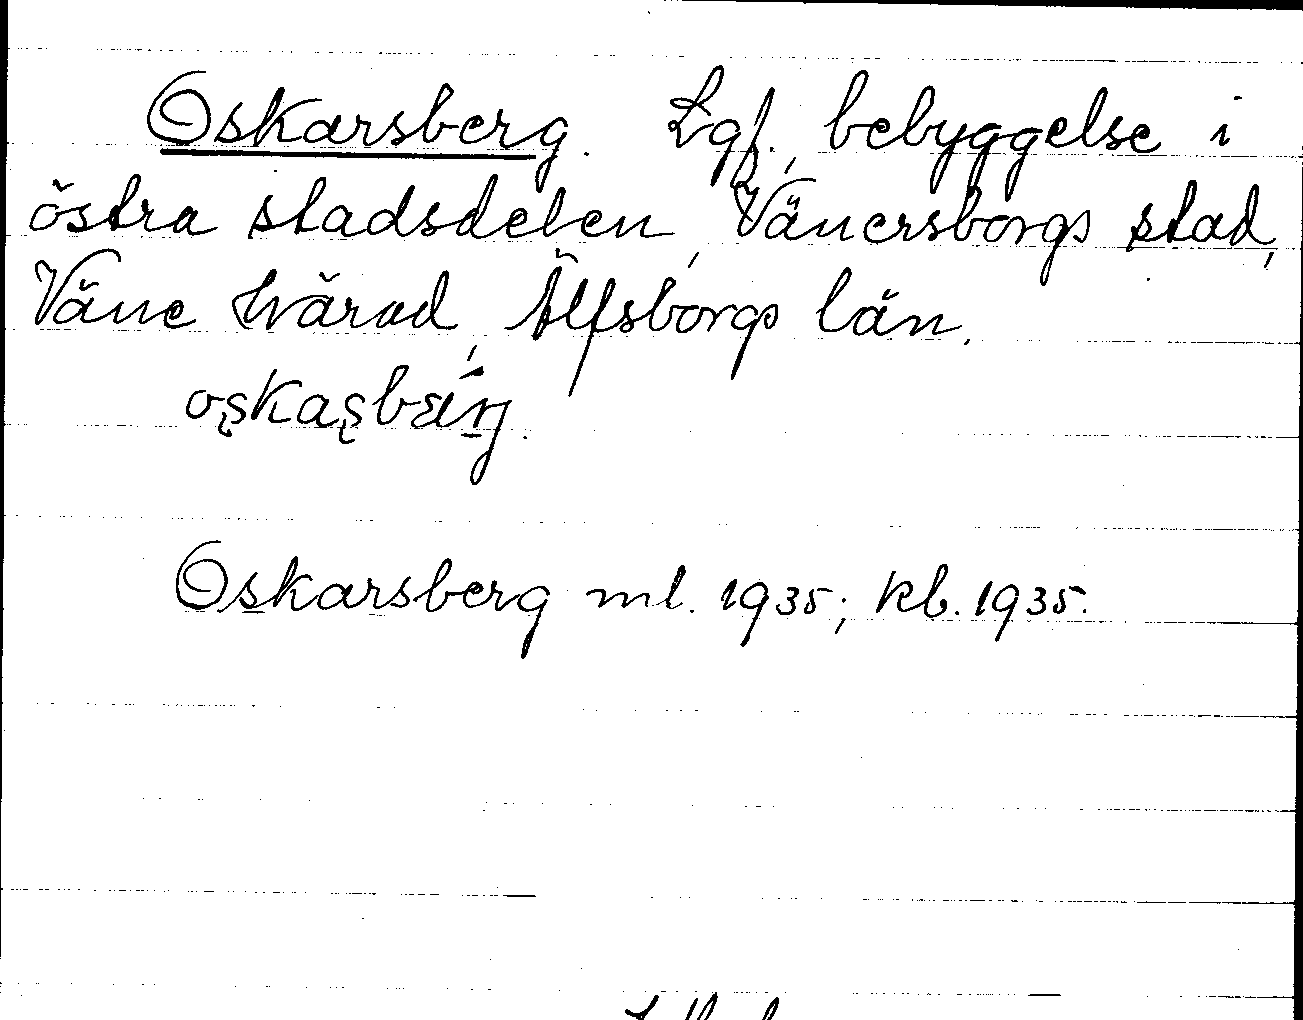 Oskarsberg. Lgf., bebyggelse i
östra stadsdelen, Vänersborgs stad,
Väne härad, Älfsborgs län.
Oskarsberg ml. 1935; kb. 1935.